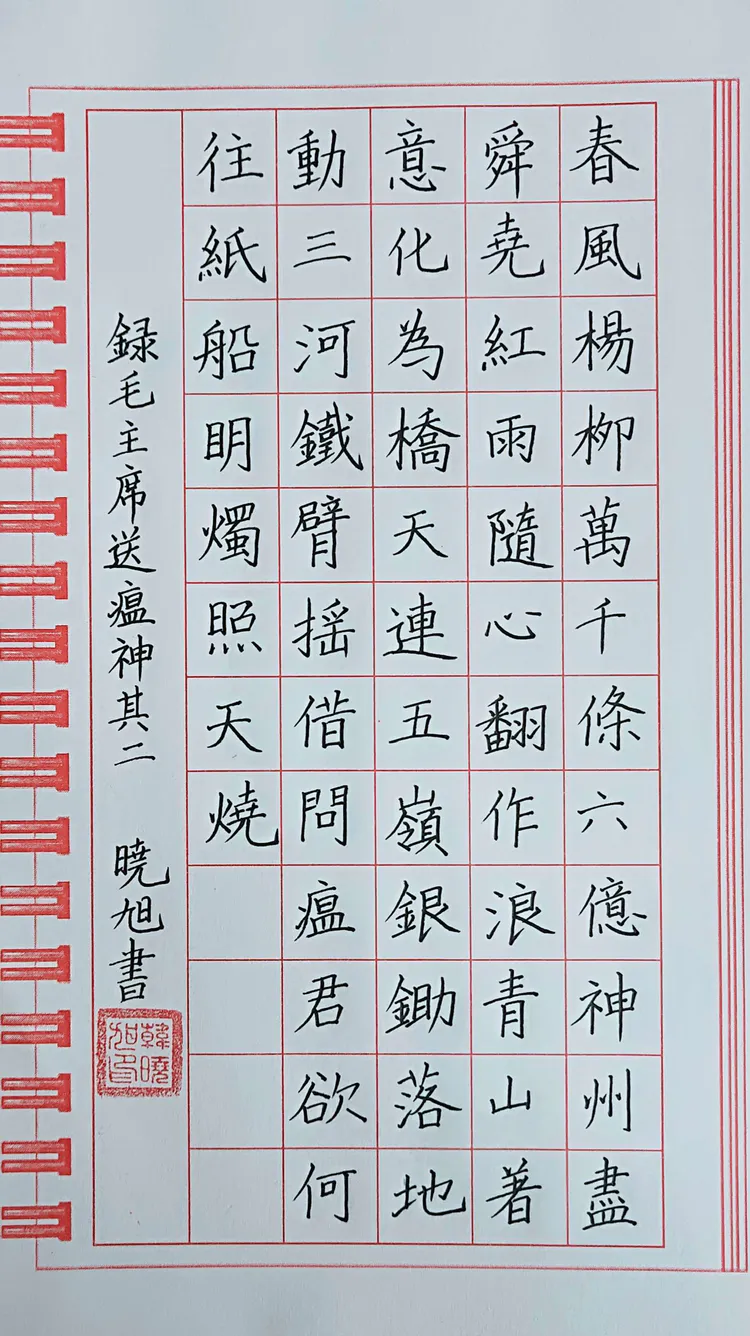 春風楊柳萬千條六億神州盡
舜堯紅雨隨心翻作浪青山著
意化為橋天連五嶺銀鋤落地
動三河鐵臂摇借問瘟君欲何
往紙船明燭照天燒
録毛主席送瘟神其二 曉旭書
韓曉旭印